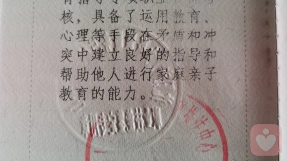 核，具备了运用教育、
心理等手段在矛盾和冲
突中建立良好的指导和
帮助他人进行家庭亲子
教育的能力。
中心